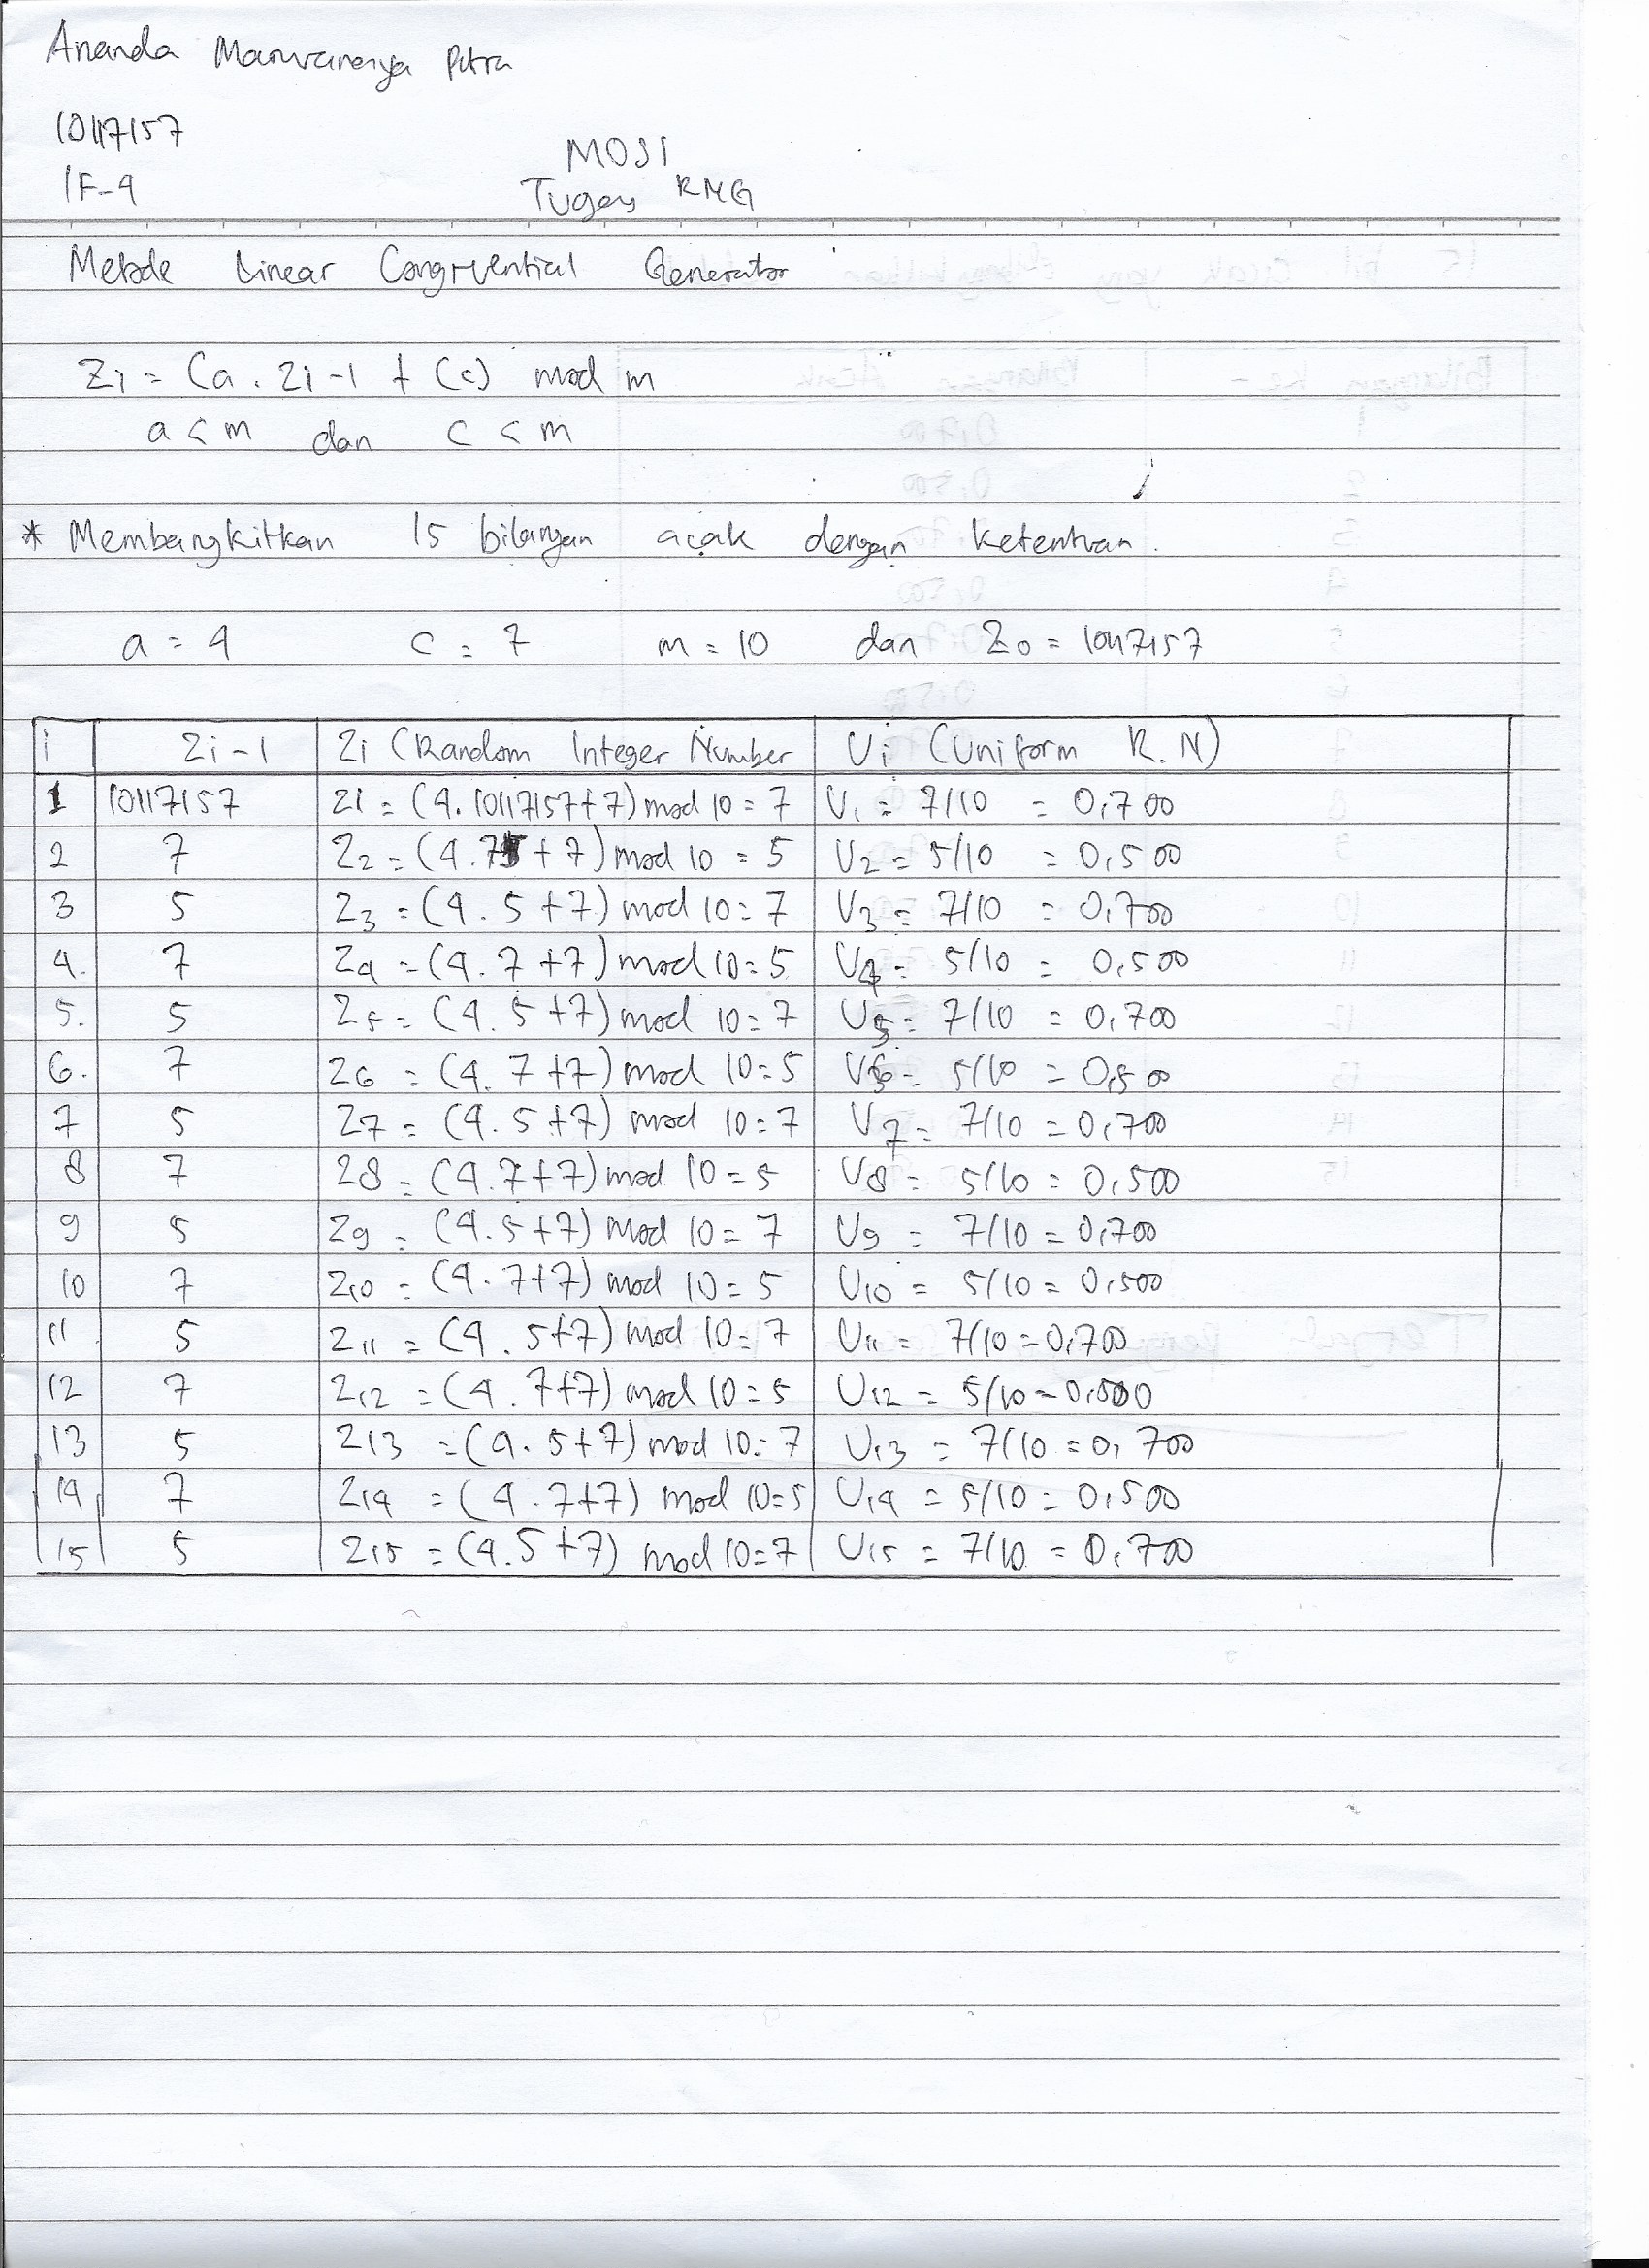 Ananda Marwanenya Putra
10117157
IF-4
MOSI
Tugas RNG
Metode Linear Congruential Generator
Zi = (a . Zi-1 + (c) mod m
a < m dan c < m
* Membangkitkan 15 bilangan acak dengan ketentuan.
a = 4 c = 7 m = 10 dan Z0 = 10117157
i Zi-1 Zi (Random Integer Number Ui (Uniform R.N)
1 10117157 Z1 = (4.10117157+7) mod 10 = 7 U1 = 7/10 = 0,700
2 7 Z2 = (4.7 + 7) mod 10 = 5 U2 = 5/10 = 0,500
3 5 Z3 = (4.5+7) mod 10 = 7 U3 = 7/10 = 0,700
4. 7 Z4 = (4.7+7) mod 10 = 5 U4 = 5/10 = 0,500
5. 5 Z5 = (4.5+7) mod 10 = 7 U5 = 7/10 = 0,700
6. 7 Z6 = (4.7+7) mod 10 = 5 U6 = 5/10 = 0,500
7 5 Z7 = (4.5+7) mod 10 = 7 U7 = 7/10 = 0,700
8 7 Z8 = (4.7+7) mod 10 = 5 U8 = 5/10 = 0,500
9 5 Z9 = (4.5+7) mod 10 = 7 U9 = 7/10 = 0,700
10 7 Z10 = (4.7+7) mod 10 = 5 U10 = 5/10 = 0,500
11 5 Z11 = (4.5+7) mod 10 = 7 U11 = 7/10 = 0,700
12 7 Z12 = (4.7+7) mod 10 = 5 U12 = 5/10 = 0,500
13 5 Z13 = (4.5+7) mod 10 = 7 U13 = 7/10 = 0,700
14 7 Z14 = (4.7+7) mod 10 = 5 U14 = 5/10 = 0,500
15 5 Z15 = (4.5+7) mod 10 = 7 U15 = 7/10 = 0,700